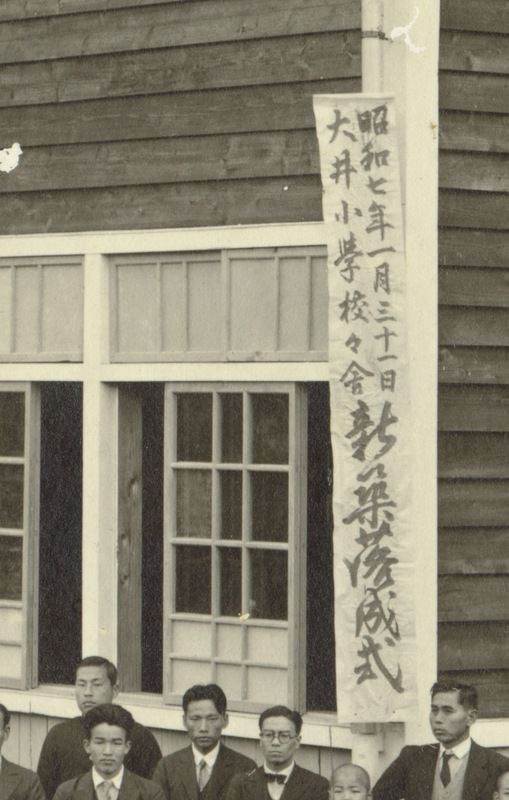 昭和七年一月三十一日
大井小學校々舎
新築落成式